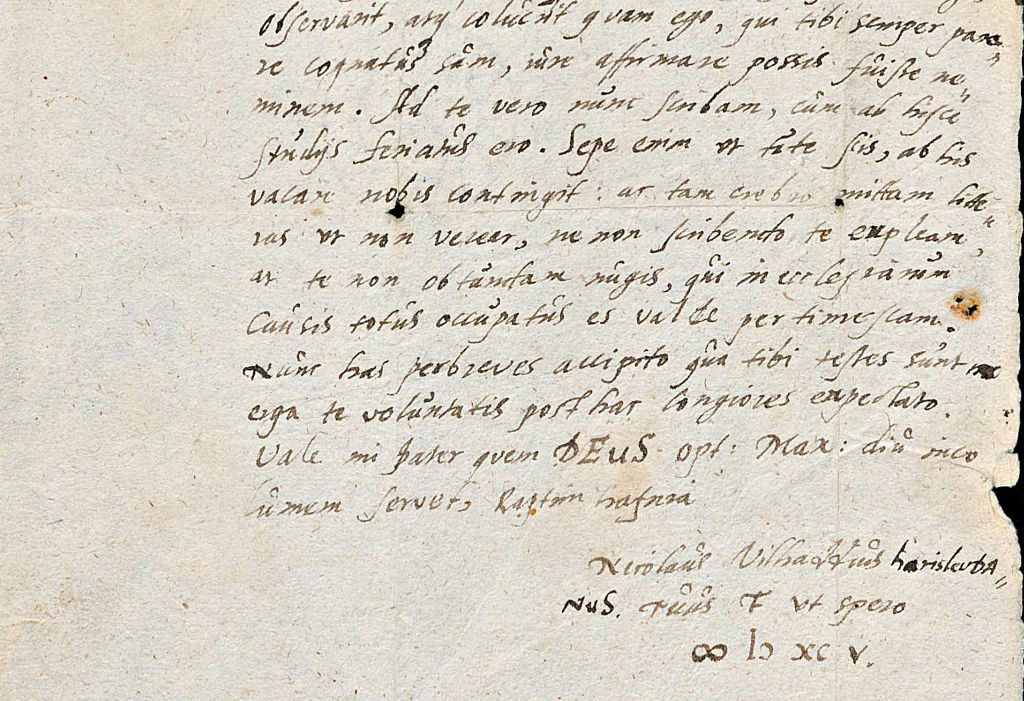 observarit, atq; coluerit quam ego, qui tibi semper pare=
re coqnatus sum, iure affirmare possis fuisse ne=
minem. Ad te vero nunc scribam, cum ab hisce
studijs feriatus ero. Sepe enim ut tute scis, ab his
vacare nobis contingit: at tam crebro mittam litte=
ras ut non verear, ne non scribendo te expleam,
at te non obtundam nugis, qui in ecclesiarum
causis totus occupatus es valde pertimescam.
Nunc has perbreves accipito qua tibi testes sunt me
erga te voluntatis post hac longiores expectato.
Vale mi pater quem DEUS opt: Max: diu inco
lumem servet, Raptim hafnia
Nicolaus harisleuBA=
NuS. Tuus F ut spero
∞ IↃ XC V.